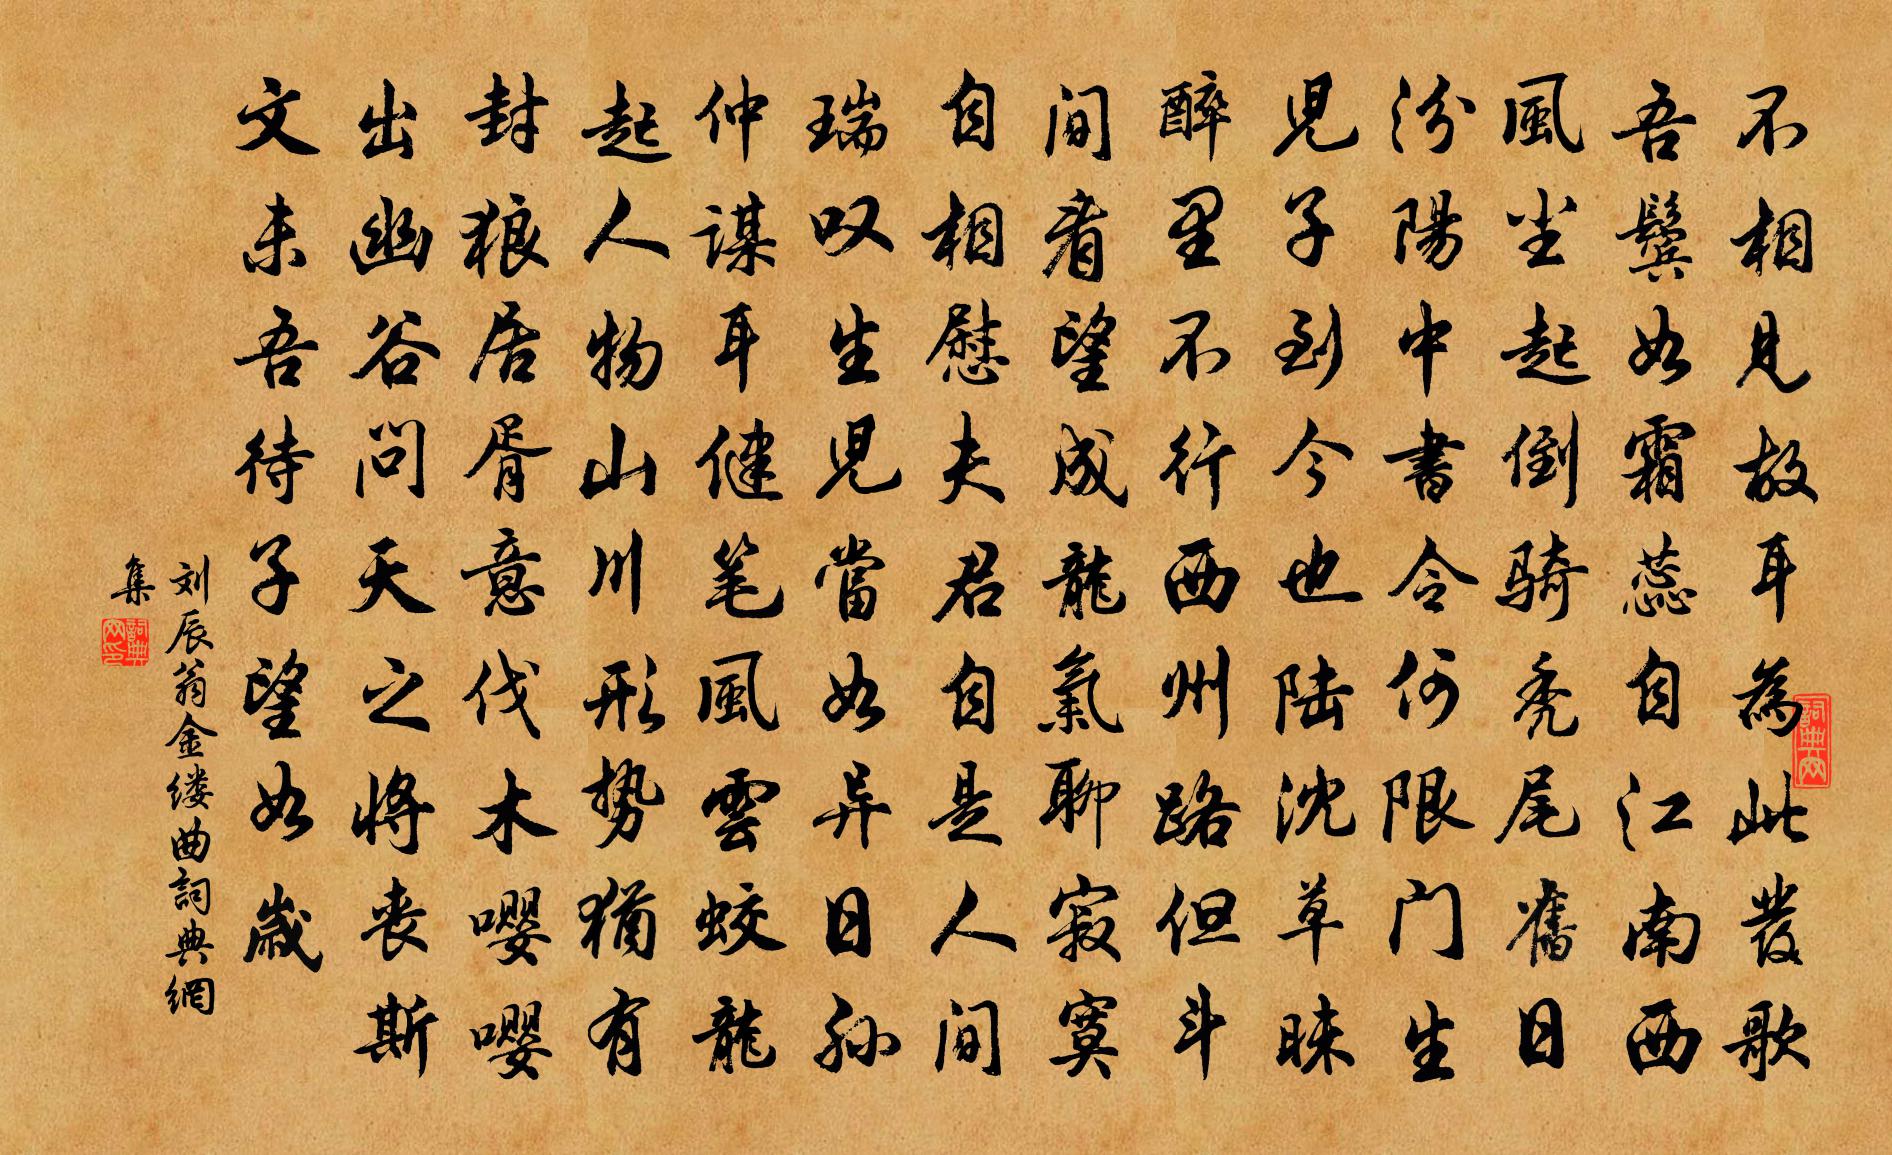 不相見故耳為此發歌
吾鬓如霜蕊自江南西
風尘起倒骑秃尾舊日
汾陽中書令何限门生
児子到今也陆沈草昧
醉里不行西州路但斗
间看望成龍氣聊寂寞
自相慰夫君自是人间
瑞叹生児當如异日孙
仲谋耳健笔風雲蛟龍
起人物山川形势犹有
封狼居胥意伐木嘤嘤
出幽谷问天之将丧斯
文未吾待子望如歲
刘辰翁金缕曲詞典網
集
詞典网
詞典网印